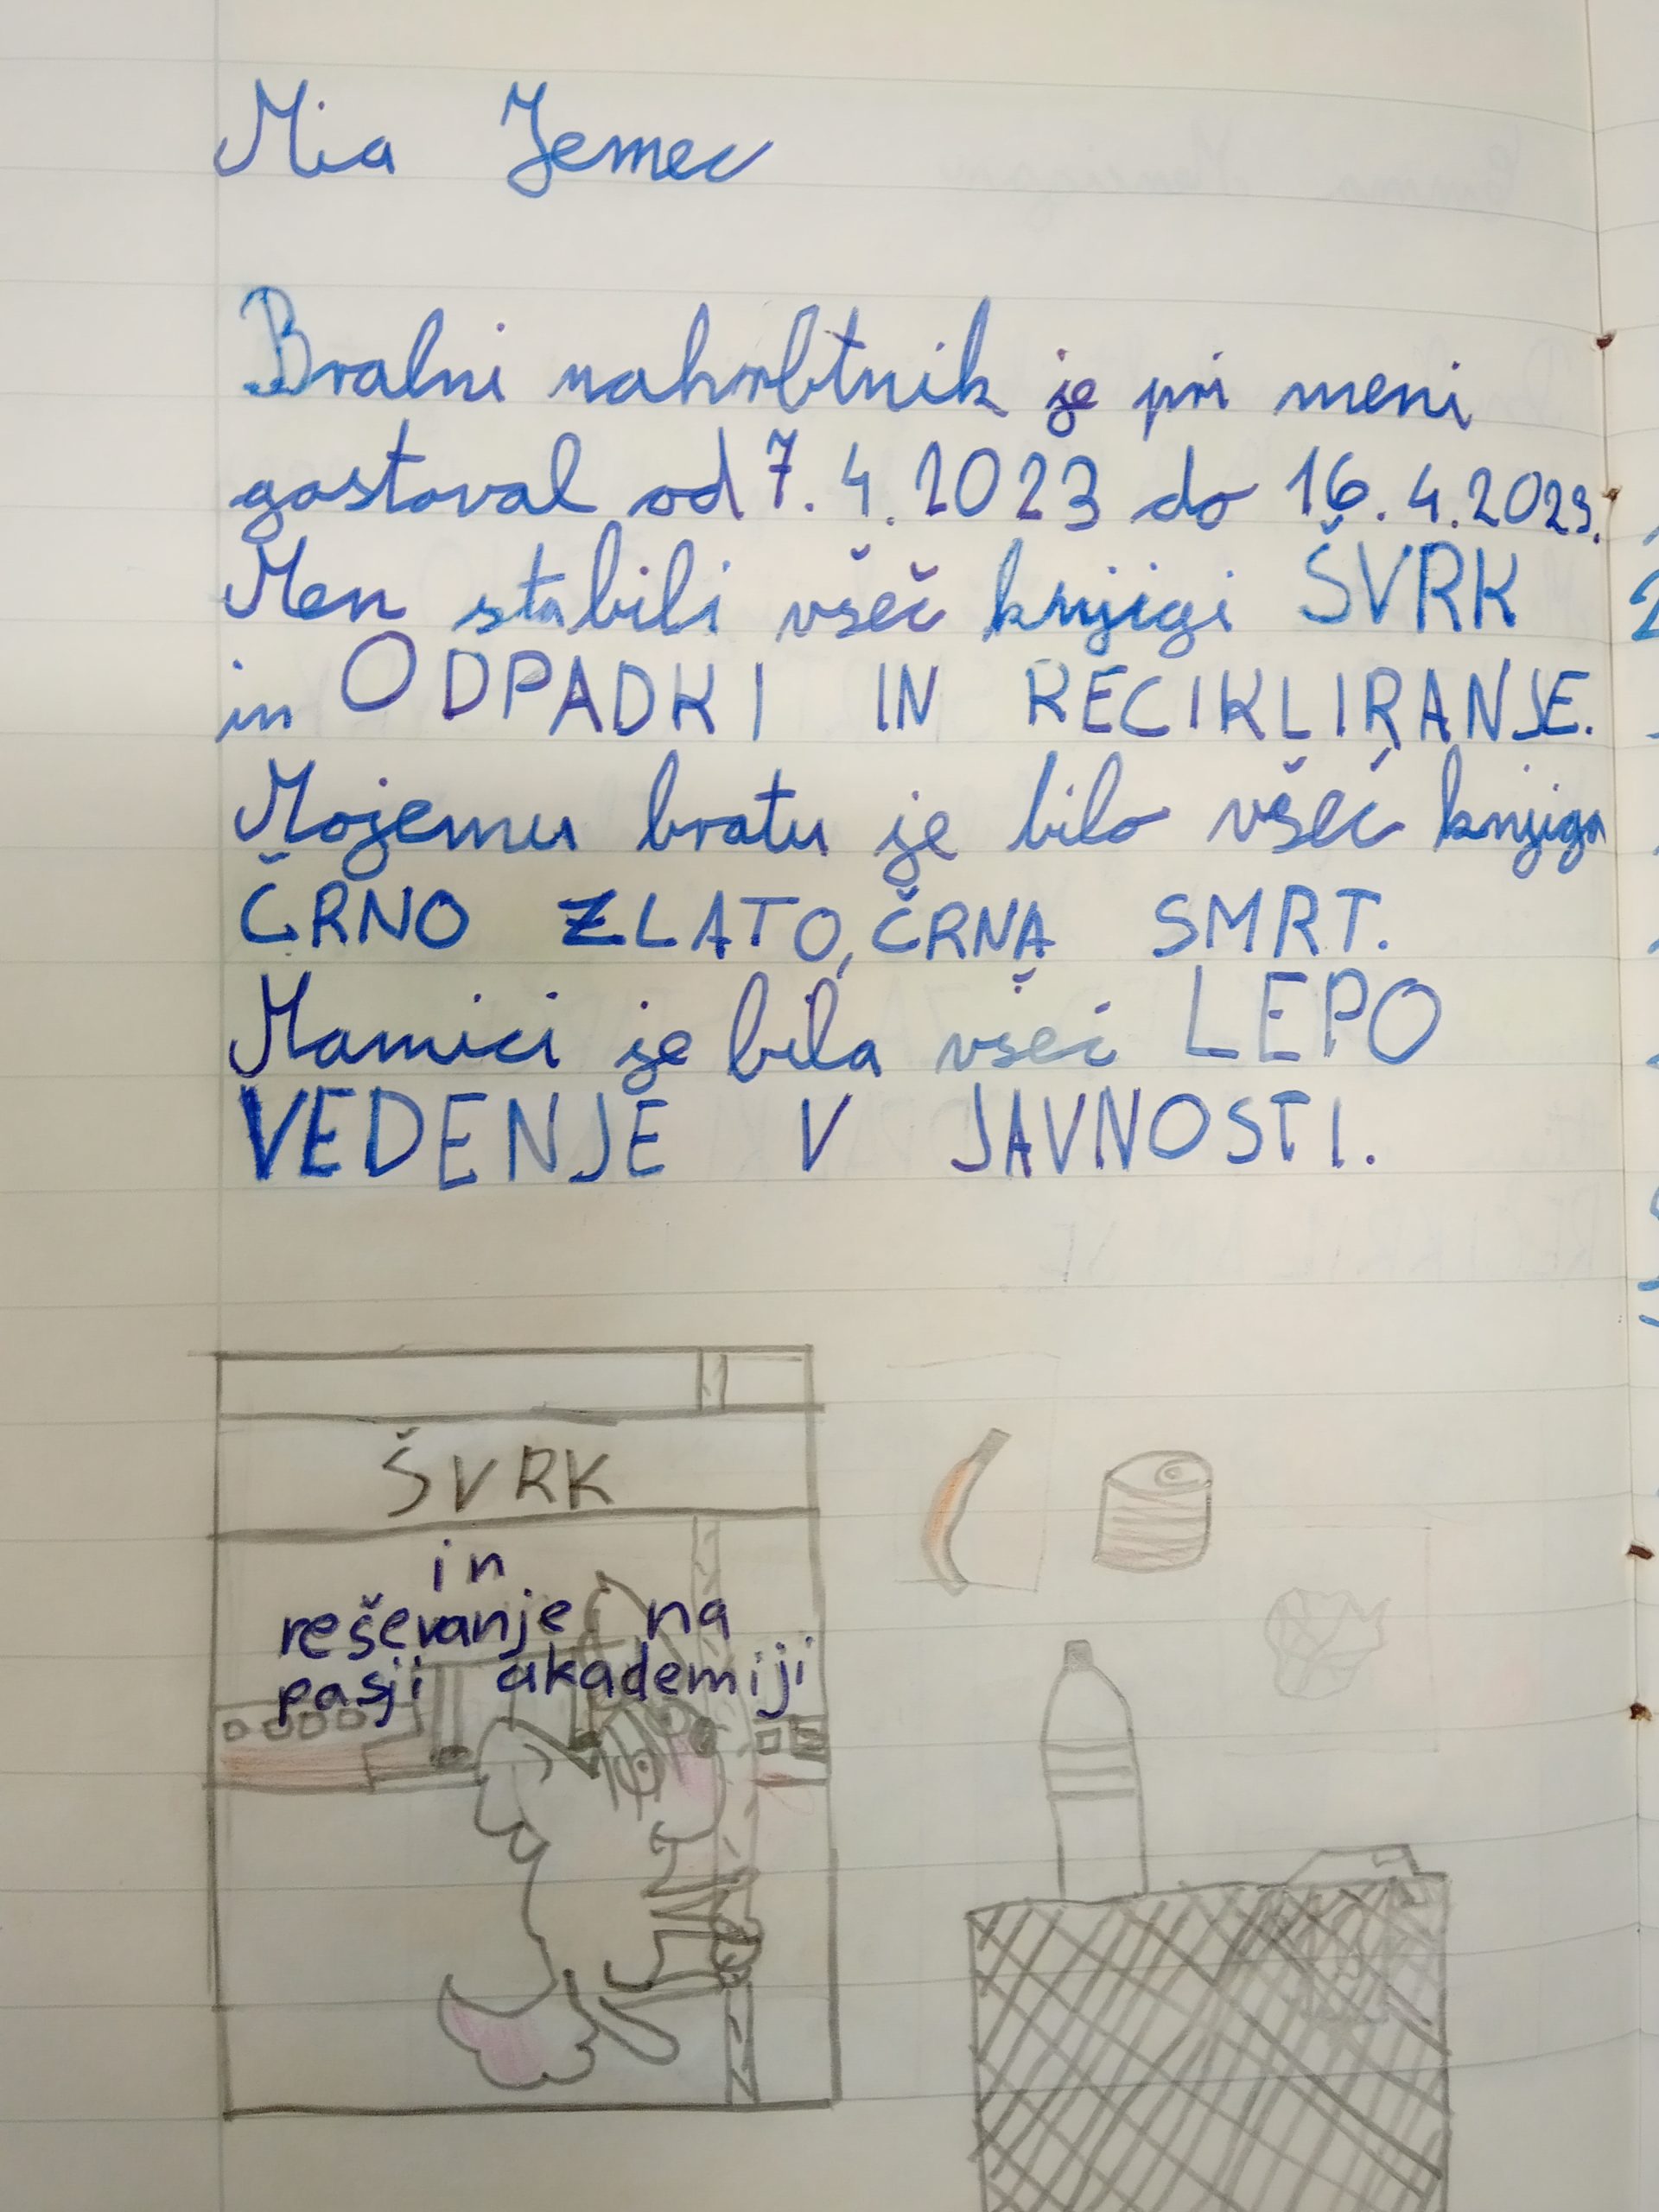 Mia Jemec
Bralni nahrbtnik je pri meni
gostoval od 7. 4. 2023 do 16. 4. 2023.
Men sta bili všeč knjigi ŠVRK
in ODPADKI IN RECIKLIRANJE.
Mojemu bratu je bilo všeč knjiga
ČRNO ZLATO, ČRNA SMRT.
Mamici je bila všeč LEPO
VEDENJE V JAVNOSTI.
ŠVRK
in
reševanje na
pasji akademiji